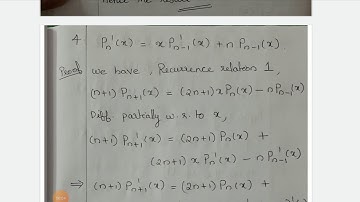 hence the result
4 P_n'(x) = x P'_{n-1}(x) + n P_{n-1}(x).
Proof we have, Recurrence relation 1,
(n+1) P_{n+1}(x) = (2n+1) x P_n(x) - n P_{n-1}(x)
Diff. partially w. r. to x,
(n+1) P'_{n+1}(x) = (2n+1) P_n(x) +
(2n+1) x P_n'(x) - n P'_{n-1}(x)
⇒ (n+1) P'_{n+1}(x) = (2n+1) P_n(x) +